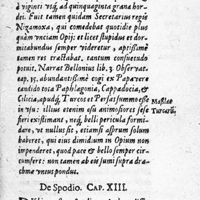 à viginti vsq̃, ad quinquaginta grana hor-
dei. Fuit tamen quidam Secretarius regis
Nizamoxa, qui comedebat quotidie plus
quàm vnciam Opij: et licet stupidus et dor-
mitabundus semper videretur, aptissimè
tamen res tractabat, tantum consuetudo
potest. Narrat Bellonius lib. 3. Obseruat.
cap. 15. abundantissimè cogi ex Papauere
cantido tota Paphlagonia, Cappadocia, &
Cilicia, apudq́, Turcos et Persas summo esse
in vsu: illius etenim esu animosiores sese
fieri existimant, neq́, belli pericula formi-
dare, vt nullus sit, etiamsi assium solum
habeat, quin eius dimidium in Opium non
impenderet, quod pace & bello semper cir-
cumfere: non tamen ab eis sumi supra dra-
chmæ vnius pondus.
Maslac
Turcarũ.
De Spodio. CAP. XIII.